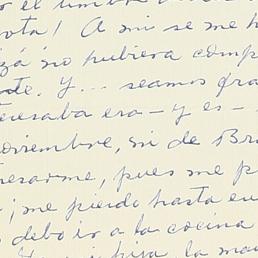 el timbre
ota! A mi se me h
zá no pudiera comp
te. Y... seamos fra
teresaba era - y es -
oviembre, ni de Bra
resarme, pues me p
; me pierdo hasta en
debo ir a la cocina
hija, la ma